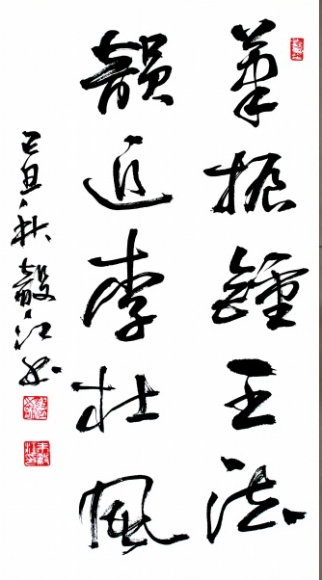 筆振鍾王法
韻追李杜風
己丑秋毅江书